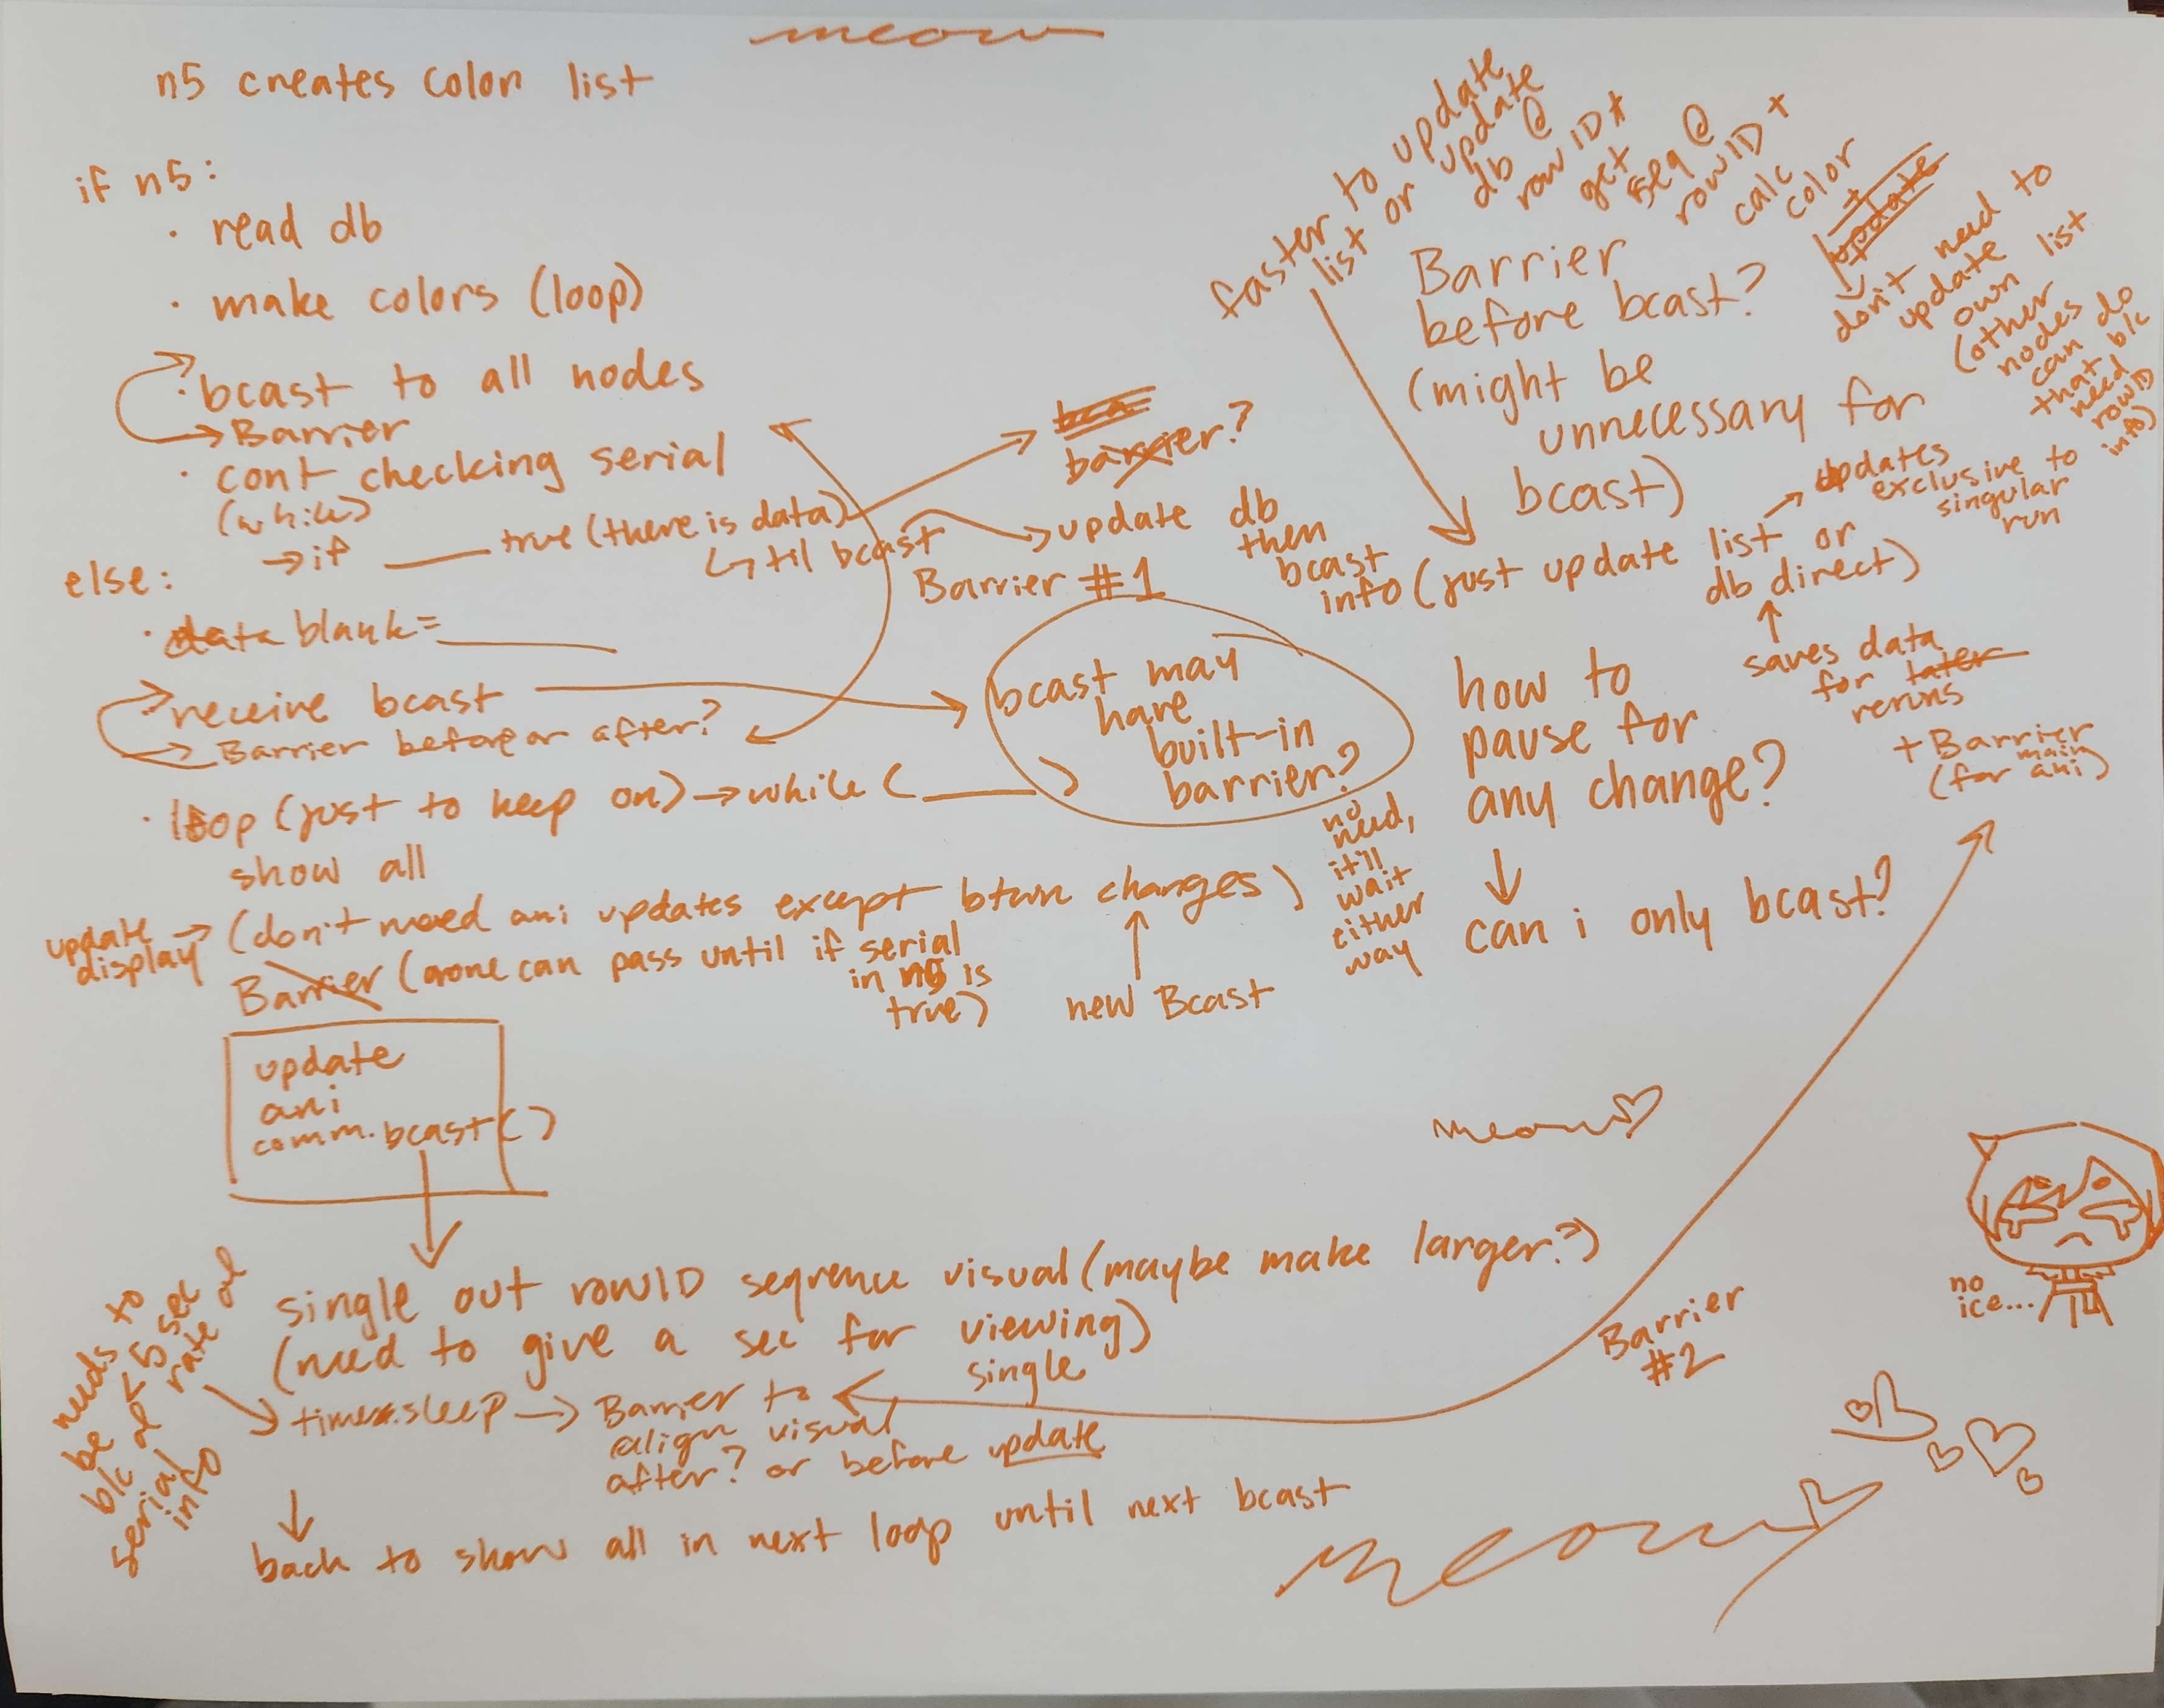 meow
n5 creates color list
if n5:
· read db
· make colors (loop)
· bcast to all nodes
Barrier
· cont checking serial
(while)
→ if ____ true (there is data)
↳ til bcast
barrier?
update db
then
bcast
info (just update list or
db direct)
updates
exclusive to
singular
run
saves data
for later
reruns
+ Barrier
(for main
ani)
Barrier #1
else:
· data blank = ____
· receive bcast
Barrier before or after?
bcast may
have
built-in
barrier?
no
need,
it'll
wait
either
way
· loop (just to keep on) → while ( ____ )
show all
update
display → (don't need ani updates except btwn changes)
new Bcast
Barrier (none can pass until if serial
in n5 is
true)
update
ani
comm.bcast()
single out rowID sequence visual (maybe make larger?)
(need to give a sec for viewing)
needs to
be < 5 sec
b/c of rate of
serial
info
time.sleep → Barrier to
align single visual
after? or before update
Barrier
#2
back to show all in next loop until next bcast
faster to update
list or update
db @
row ID +
get
seq @
rowID +
calc
color
+
update
don't need to
update
own list
(other
nodes
can do
that b/c
need
rowID
info)
Barrier
before bcast?
(might be
unnecessary for
bcast)
how to
pause for
any change?
↓
can i only bcast?
meow
no
ice...
meow